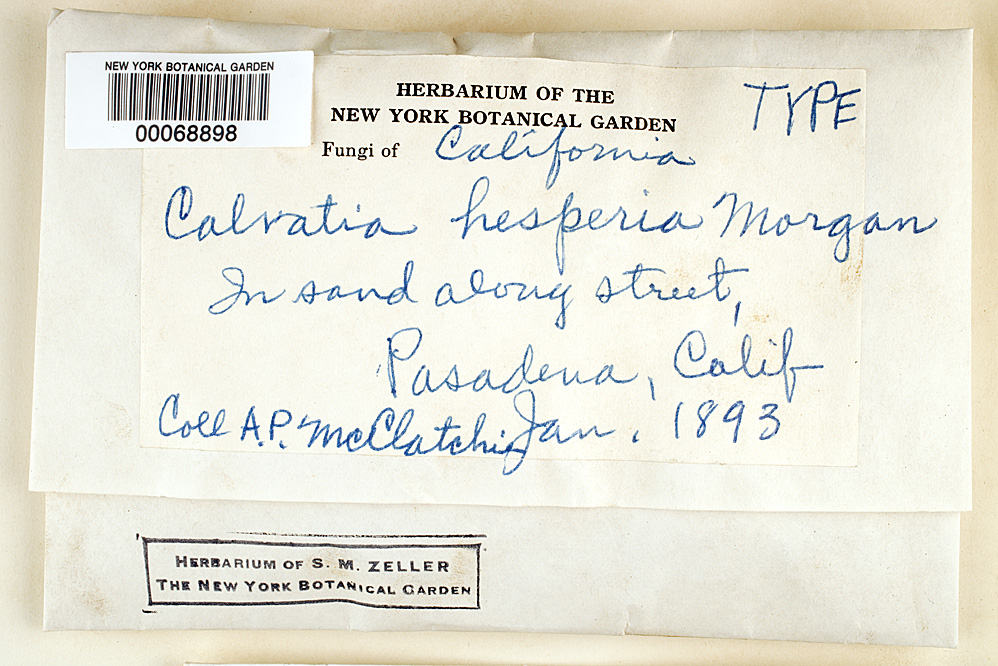 NEW YORK BOTANICAL GARDEN
00068898
HERBARIUM OF THE
NEW YORK BOTANICAL GARDEN
TYPE
Fungi of California
Calvatia hesperia Morgan
In sand along street,
Pasadena, Calif
Coll A.P. McClatchie Jan. 1893
HERBARIUM OF S. M. ZELLER
THE NEW YORK BOTANICAL GARDEN